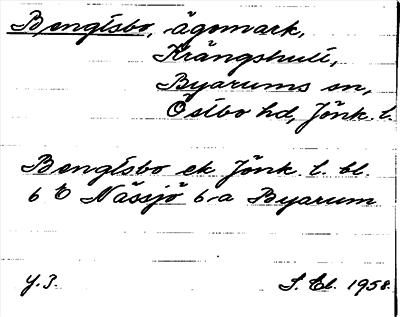 Bengtsbo, ägomark,
Krängshult,
Byarums sn,
Östbo hd, Jönk. l.
Bengtsbo ek. Jönk. l. bl.
6 Ö Nässjö 6-a Byarum
y. 3.
S. Eb. 1958.